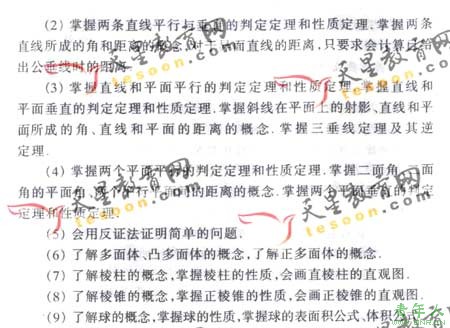 (2) 掌握两条直线平行与垂直的判定定理和性质定理.掌握两条
直线所成的角和距离的概念,对于异面直线的距离,只要求会计算已给
出公垂线时的距离.
(3) 掌握直线和平面平行的判定定理和性质定理.掌握直线和
平面垂直的判定定理和性质定理.掌握斜线在平面上的射影、直线和平
面所成的角、直线和平面的距离的概念.掌握三垂线定理及其逆
定理.
(4) 掌握两个平面平行的判定定理和性质定理.掌握二面角、二面
角的平面角、两个平行平面间的距离的概念.掌握两个平面垂直的判定
定理和性质定理.
(5) 会用反证法证明简单的问题.
(6) 了解多面体、凸多面体的概念,了解正多面体的概念.
(7) 了解棱柱的概念,掌握棱柱的性质,会画直棱柱的直观图.
(8) 了解棱锥的概念,掌握正棱锥的性质,会画正棱锥的直观图.
(9) 了解球的概念,掌握球的性质,掌握球的表面积公式、体积公式.
天星教育网
天星教育网
天星教育网
天星教育网